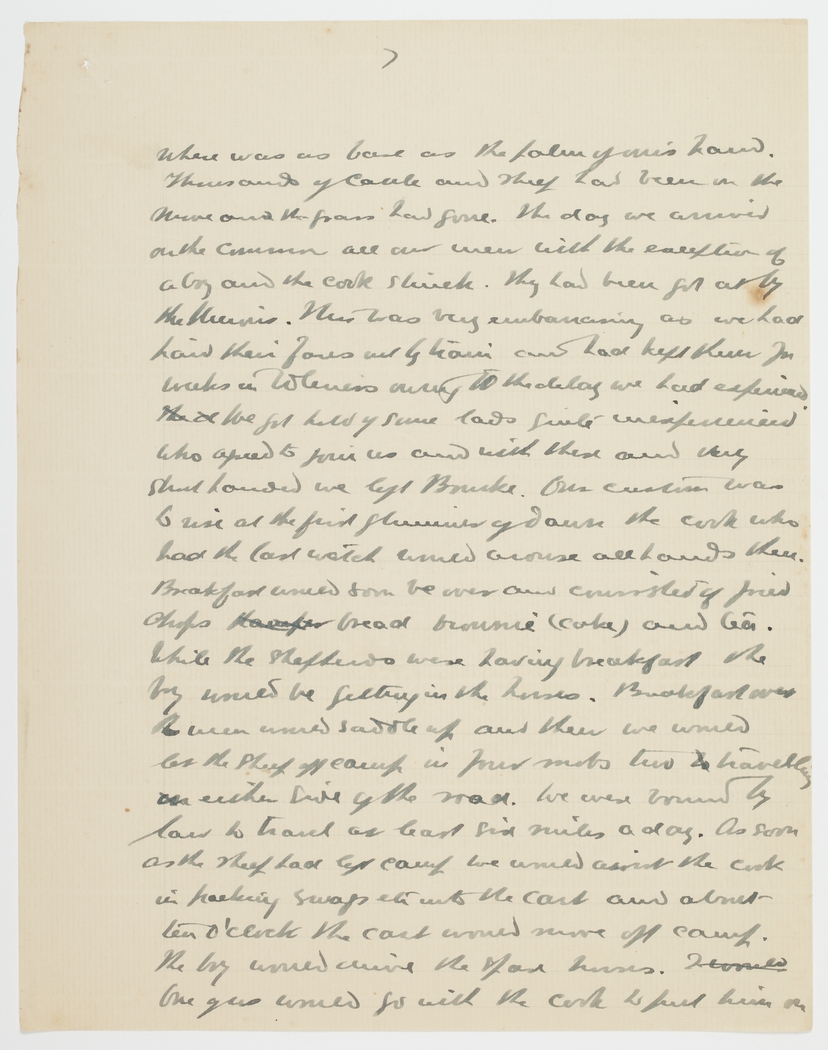 7
where was as bare as the palm of one's hand.
Thousands of Cattle and Sheep had been on the
move and the grass had gone. The day we arrived
on the common all our men with the exception of
a boy and the cook struck. They had been got at by
the Unions. This was very embarrassing as we had
paid their fares out by train and had kept them for
weeks in idleness owing to the delay we had experienced
We got hold of some lads quite inexperienced
who agreed to join us and with these and very
short handed we left Bourke. Our custom was
to rise at the first glimmer of dawn the cook who
had the last watch would arouse all hands then.
Breakfast would soon be over and consisted of fried
chops bread brownie (cake) and tea.
While the shepherds were having breakfast the
boy would be getting in the horses. Breakfast over
the men would saddle up and then we would
let the sheep off camp in four mobs two travelling
on either side of the road. We were bound by
law to travel at least six miles a day. As soon
as the sheep had left camp we would assist the cook
in packing swags etc into the cart and about
ten O'clock the cart would move off camp.
The boy would drive the spare horses. I would
One of us would go with the cook to put him on